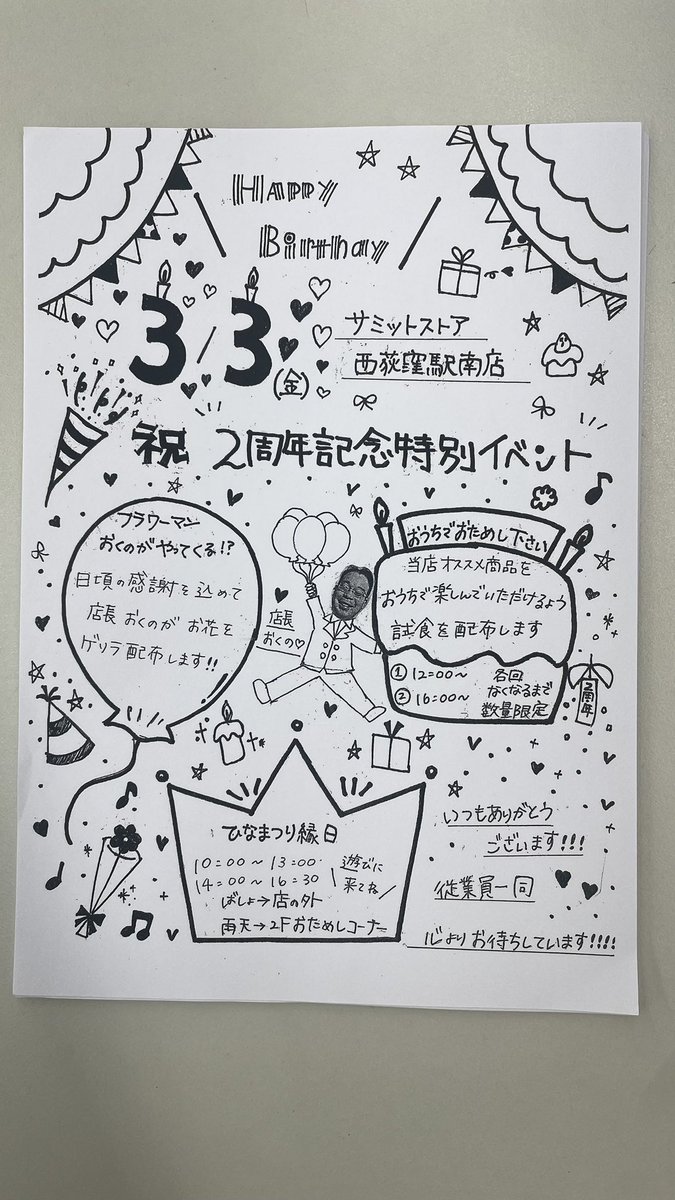 Happy
Birthday
3/3(金)
サミットストア
西荻窪駅南店
祝 2周年記念特別イベント
フラワーマン
おくのがやってくる!?
日頃の感謝を込めて
店長 おくのが お花を
ゲリラ配布します!!
店長
おくの♡
おうちでおためし下さい
当店オススメ商品を
おうちで楽しんでいただけるよう
試食を配布します
①12:00〜
②16:00〜
各回
なくなるまで
数量限定
2周年
ひなまつり縁日
10:00〜13:00
14:00〜16:30
遊びに
来てね
ばしょ→店の外
雨天→2Fおためしコーナー
いつもありがとう
ございます!!!
従業員一同
心よりお待ちしています!!!!